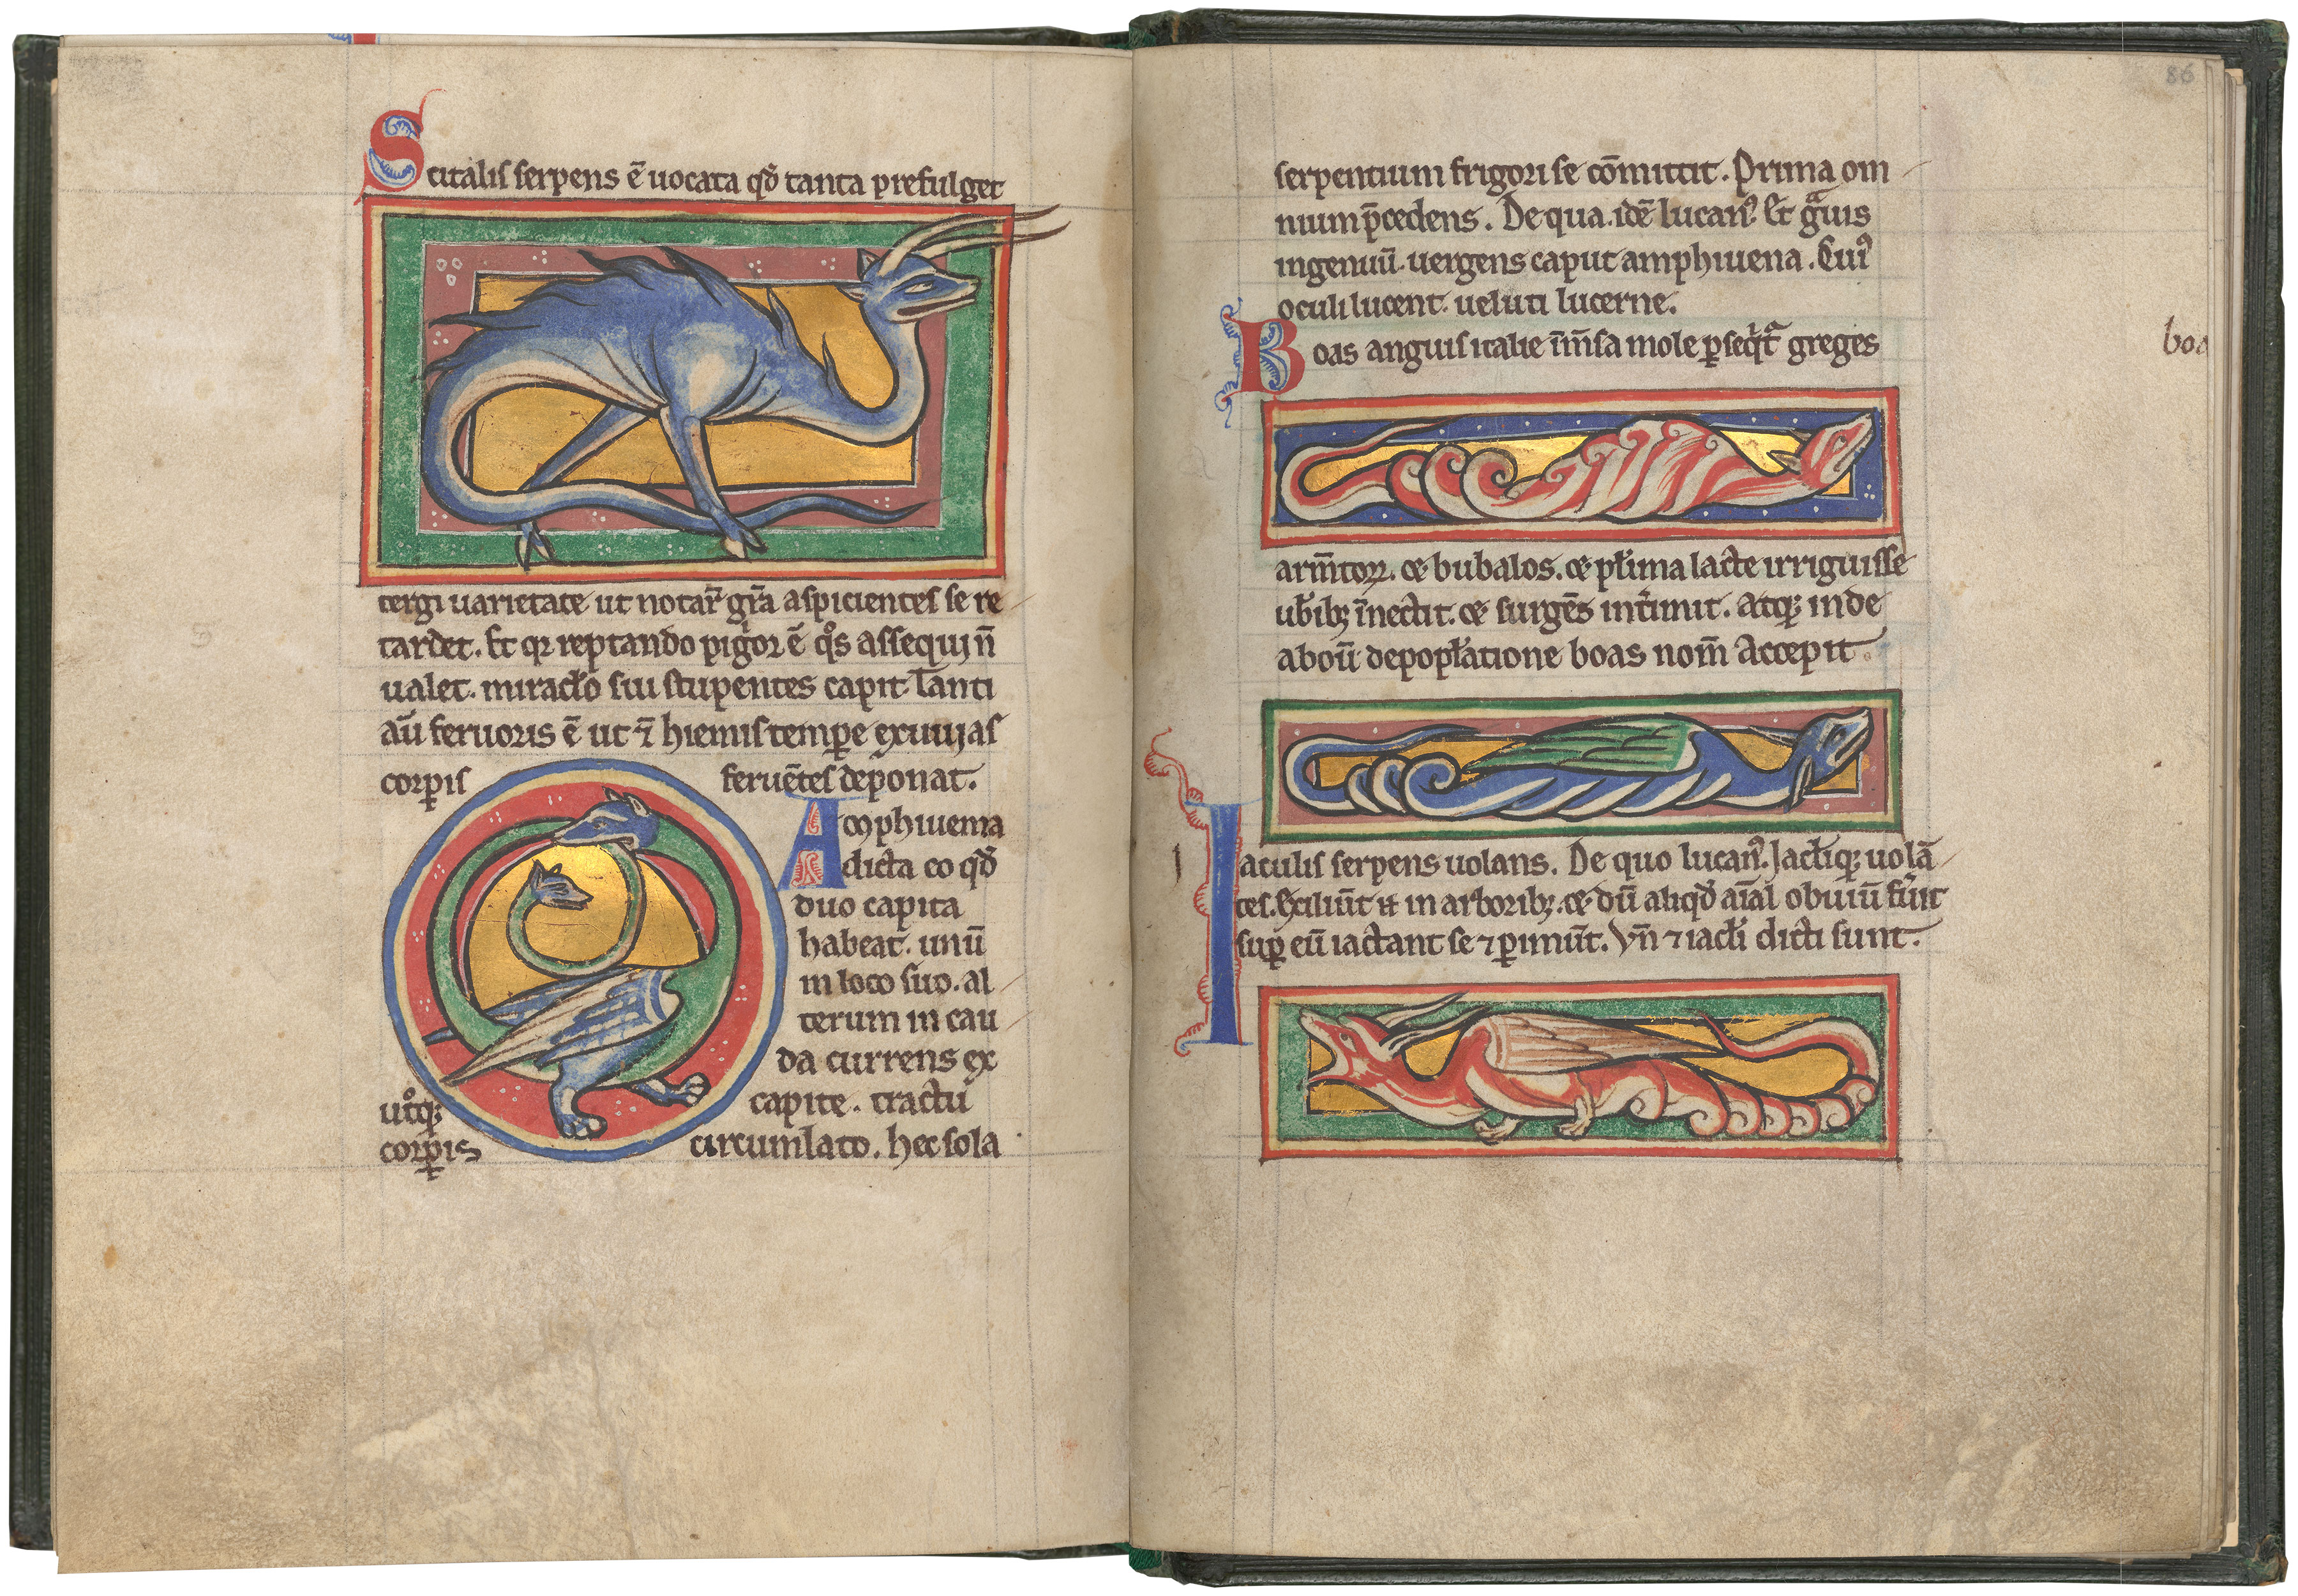 Scitalis serpens ē uocata qđ tanta prefulget
tergi uarietate ut notaꝝ gr̄a aspicientes se re
tardet. Et qꝛ reptando pigͥor ē qͦs assequi n̄
ualet. miracl̵o sui stupentes capit. Tanti
aū feruoris ē ut ⁊ hiemis tempꝑe exuuias
corꝑis feruētes deponat.
Amphiuena
dicta eo qđ
duo capita
habeat. unū
in loco suo. al
terum in cau
da currens ex
utͦqꝫ capite. tractu
corꝑis circumlato. hec sola
86
serpentium frigori se cōmittit. Prima om
nium p̄cedens. De qua idē lucanꝰ. Et gᷓuis
ingenuū uergens caput amphiuena. Cuiꝰ
oculi lucent ueluti lucerne.
Boas anguis italie īm̄sa mole ꝑseqͥtᷓ greges
boa
arm̄toꝝ. ce bubalos. ce pl̵ima lacte irriguisse
ub̄ibꝫ īnectit. ce surgēs int̄imit. atqꝫ inde
a boū depopl̵atione boas nom̄ accepit.
Iaculis serpens uolans. De quo lucanꝰ. Jacl̵iqꝫ uolā
tes. Exiliūt eī in arboribꝫ. ce dū aliqđ aīal obuiū fūit
suꝑ eū iactant se ⁊ ꝑimūt. Vn̄ ⁊ iacl̵i dicti sunt.